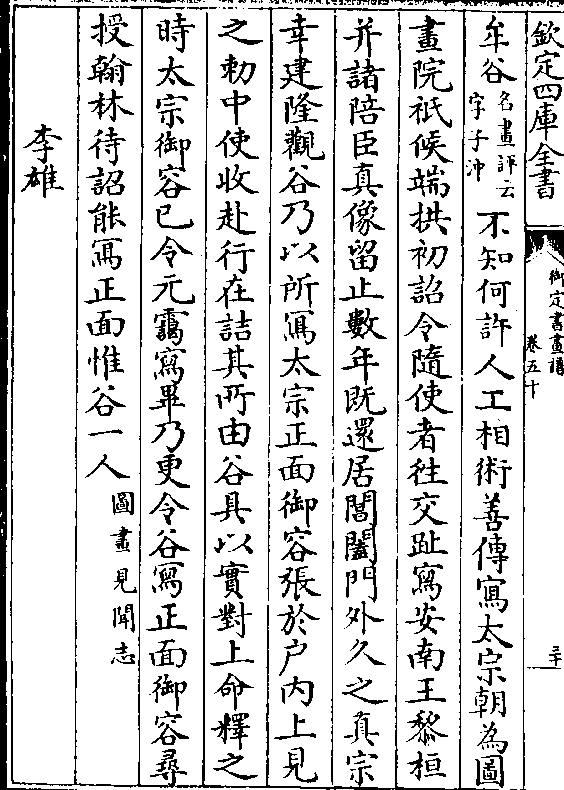 欽定四庫全書
御定書畫譜
卷五十
三十
牟谷名畫評云字子沖不知何許人工相術善傳寫太宗朝為圖
畫院祇候端拱初詔令隨使者往交趾寫安南王黎桓
并諸陪臣真像留止數年既還居閶闔門外久之真宗
幸建隆觀谷乃以所寫太宗正面御容張於户内上見
之勅中使收赴行在詰其所由谷具以實對上命釋之
時太宗御容已令元靄寫畢乃更令谷寫正面御容尋
授翰林待詔能寫正面惟谷一人圖畫見聞志
李雄